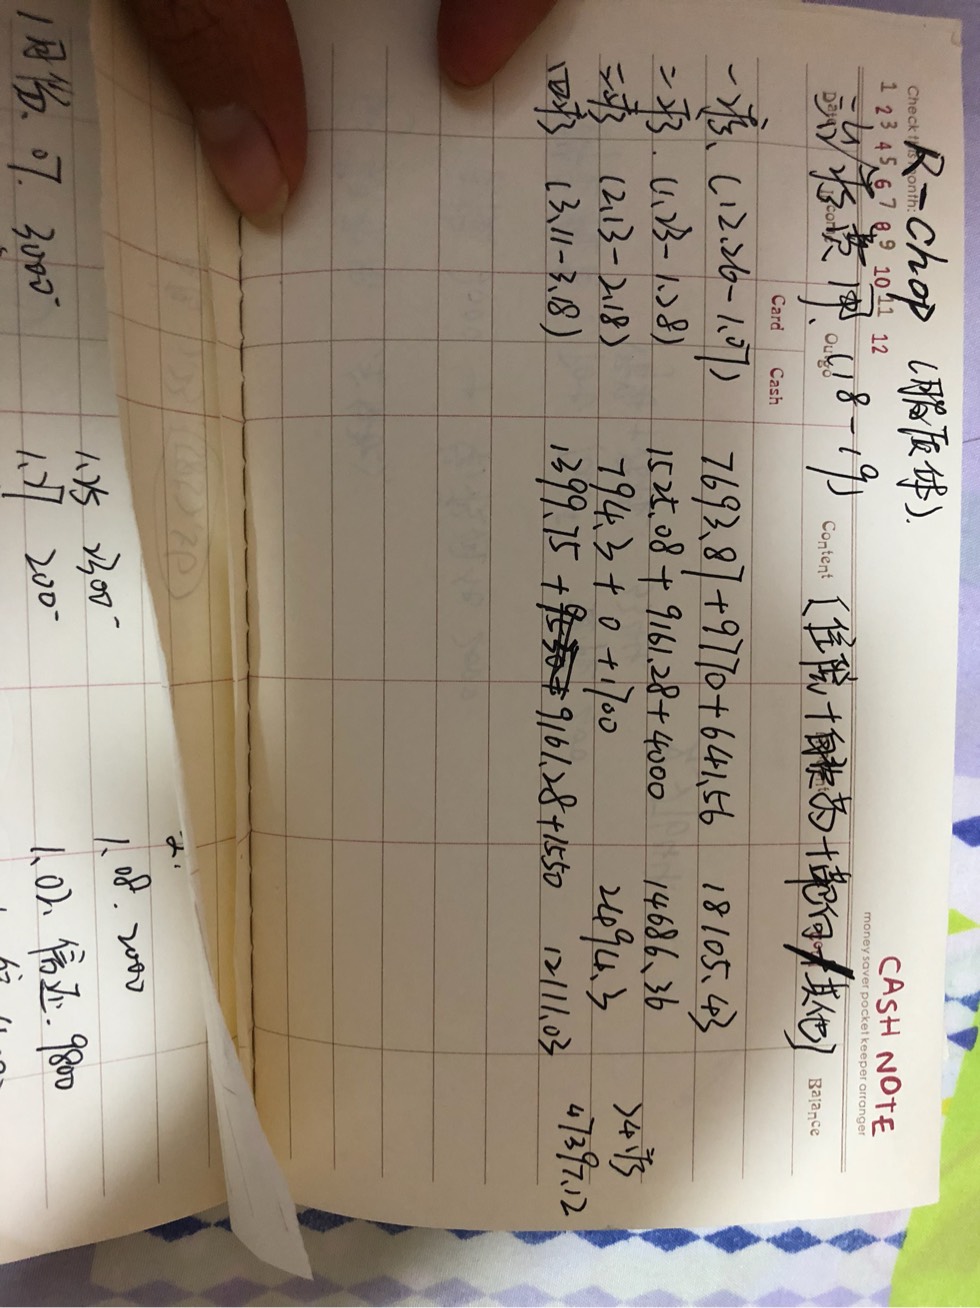 Check this month:
1 2 3 4 5 6 7 8 9 10 11 12
CASH NOTE
money saver pocket keeper arranger
R-Chop (脂质体).
治疗费用、(18-19) (住院+自费药+靶向+其他)
Date Income Outgo Content Balance
Card Cash
一疗、(12.26-1.07) 7693.87+9770+641.56 18105.43
二疗. (1.23-1.28) 1525.08+9161.28+4000 14686.36
三疗 (2.13-2.18) 794.3+0+1700 2494.3
四疗 (3.11-3.18) 1399.75+9161.28+1550 12111.03
>4疗
47397.12
2.
1.08. 2000
1.25 2300-
1.02. 信还. 9800
1.27 200-
1月份. 07. 3000-